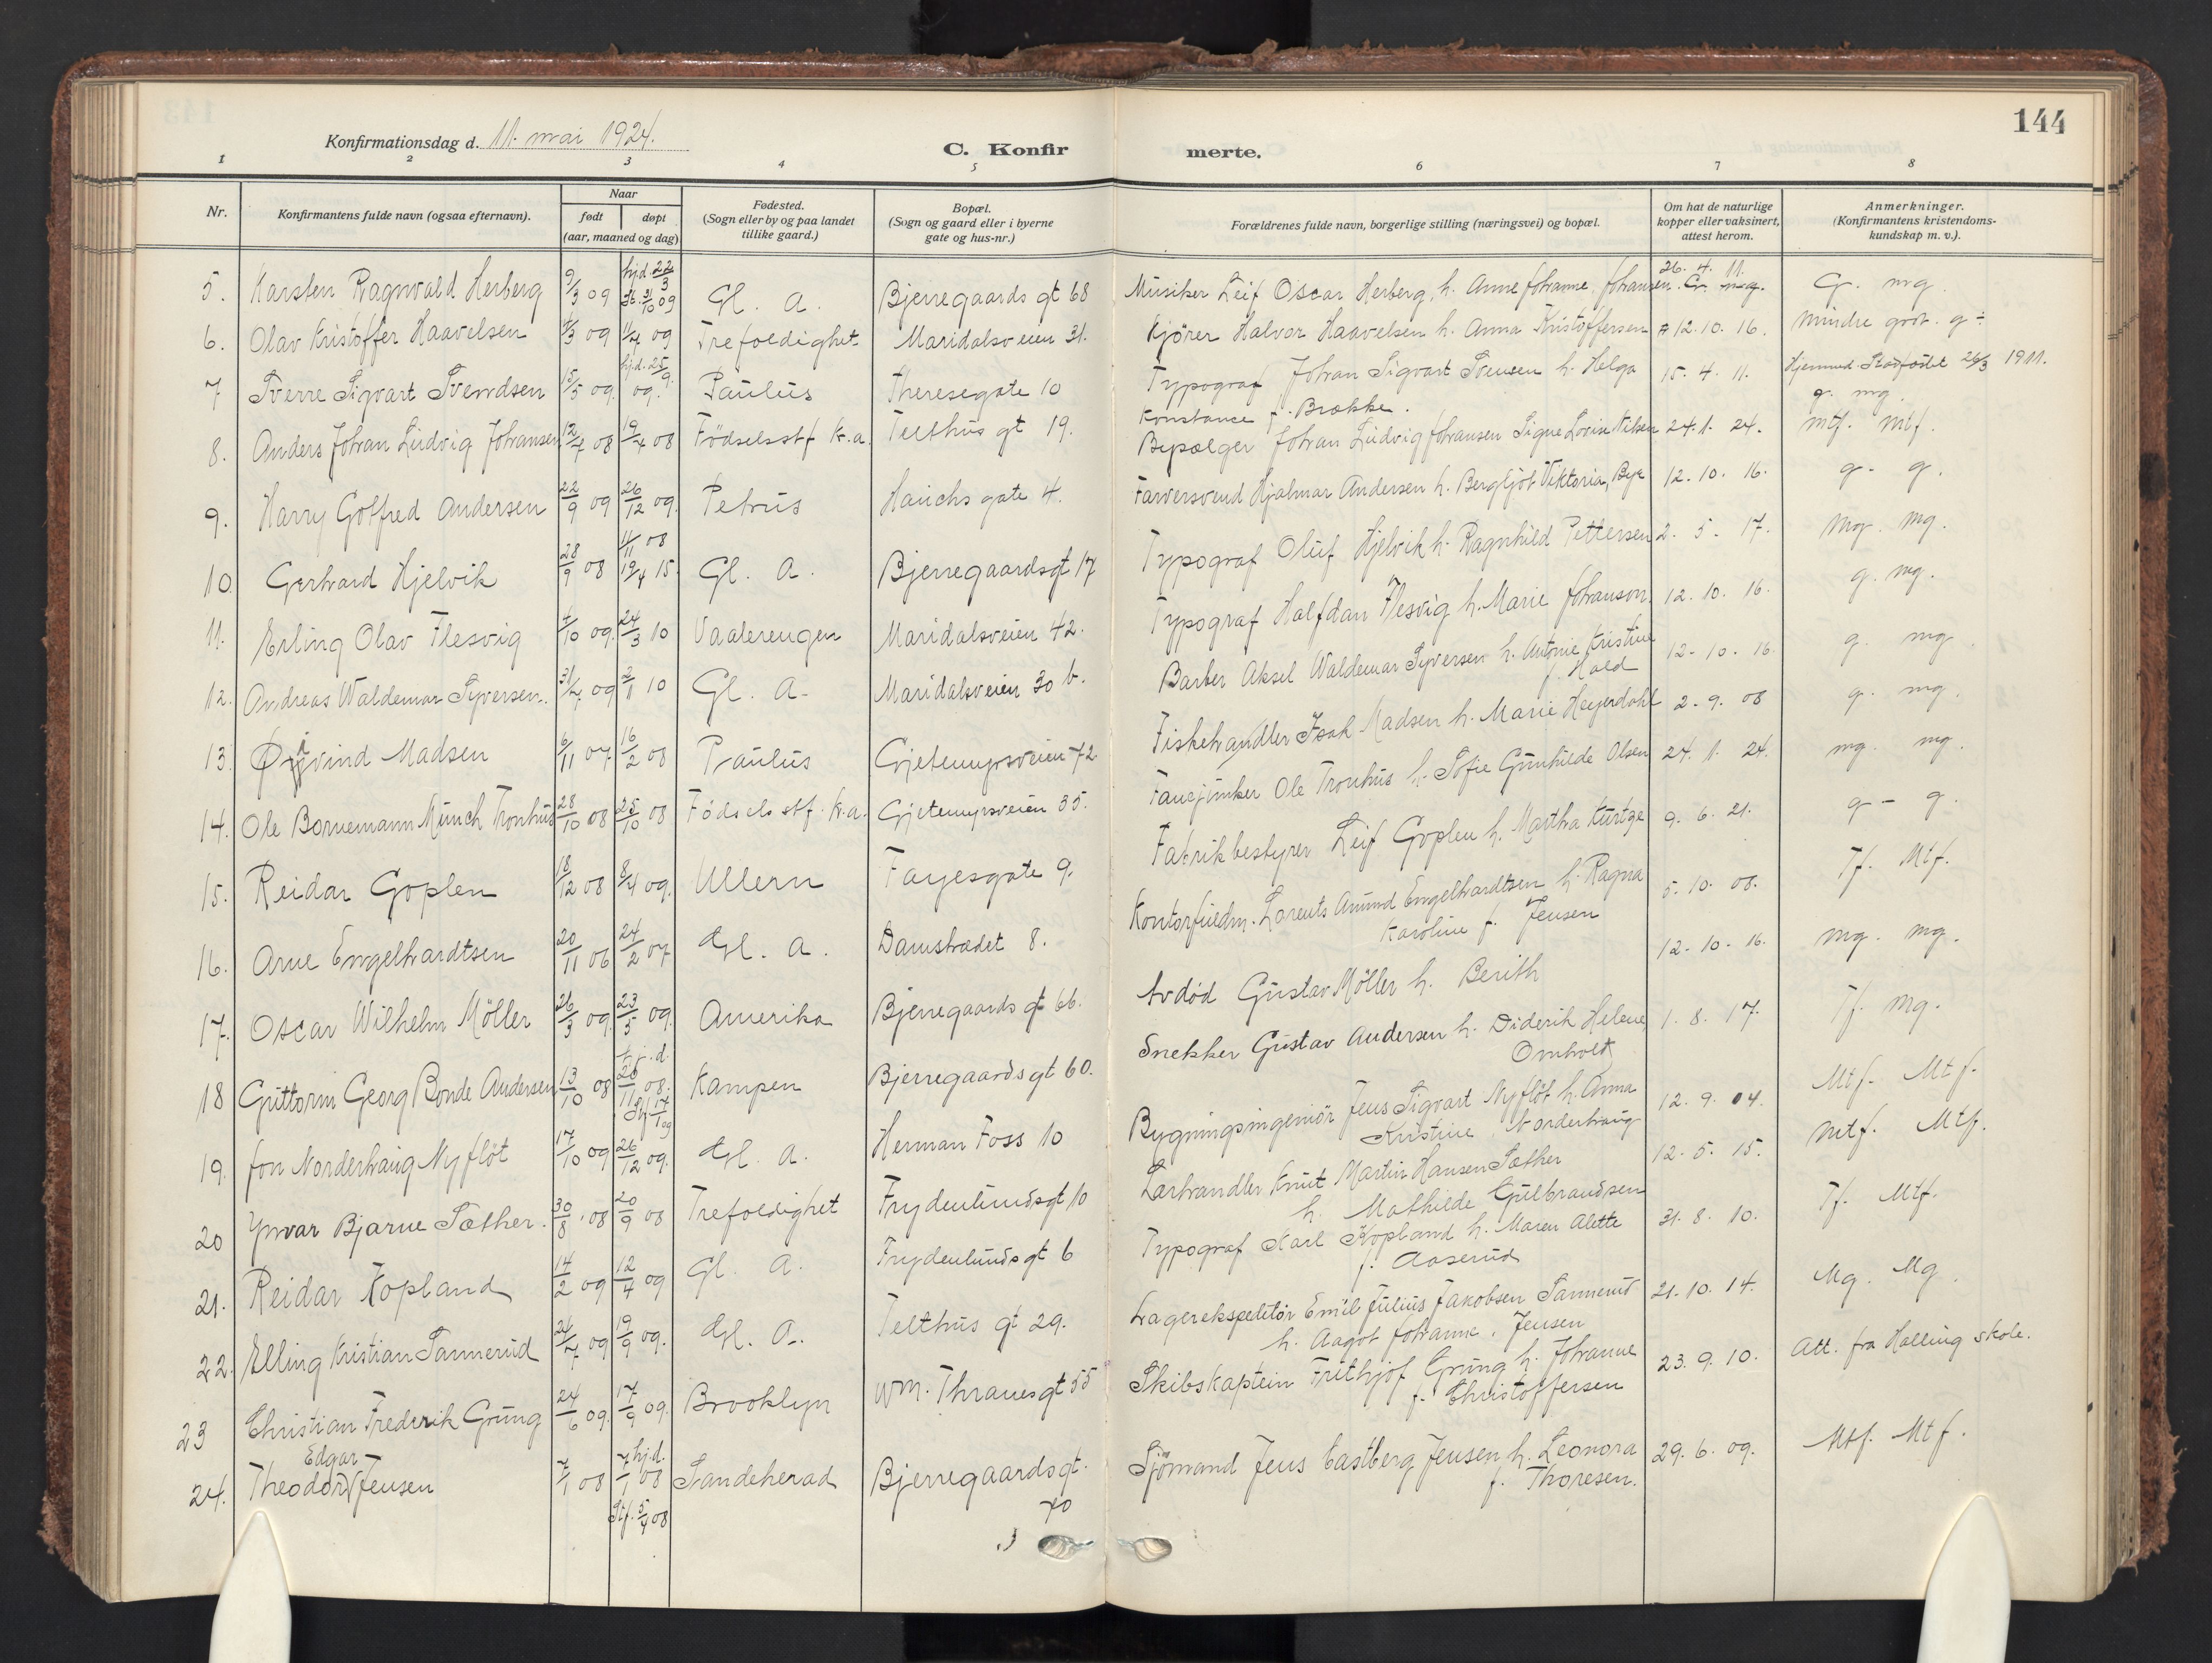 144
Konfirmationsdag d. 11. mai 1924.
C. Konfirmerte.
1 2 3 4 5 6 7 8
Nr. Konfirmantens fulde navn (ogsaa efternavn). Naar født døpt (aar, maaned og dag) Fødested. (Sogn eller by og paa landet tillike gaard.) Bopæl. (Sogn og gaard eller i byerne gate og hus-nr.) Forældrenes fulde navn, borgerlige stilling (næringsvei) og bopæl. Om hat de naturlige kopper eller vaksinert, attest herom. Anmerkninger. (Konfirmantens kristendomskundskap m. v.).
5. Karsten Ragnvald Herberg 9/3 09 hj.d. 22/3 st. 31/10 09 Gl. A. Bjerregaards gt 68 Musiker Leif Oscar Herberg, h. Anne Johanne Johansen. 26. 4. 11. G. mg.
6. Olav Kristoffer Haavelsen 4/3 09 11/4 09 Trefoldighet Maridalsveien 31. Kjörer Halvor Haavelsen h. Anna Kristoffersen 12. 10. 16. Mindre godt. g÷
7 Sverre Sigvart Svendsen 15/5 09. hj.d. 25/9 09. Paulus Theresegate 10 Typograf Johan Sigvart Svensen h. Helga Konstance f. Brække. 15. 4. 11. Hjemmed. Stadfæstet 26/3 1911. g. mg.
8. Anders Johan Ludvig Johansen 12/4 08 19/4 08 Födselsstf Kr.a. Telthus gt 19. Johan Ludvig Johansen Signe Lovise Nilsen 24. 1. 24. mtf. mtf.
9. Harry Gotfred Andersen 22/9 09 26/12 09. Petrus Hauchs gate 4. Farversvend Hjalmar Andersen h. Bergljot Viktoria, Bye 12. 10. 16. g. g.
10. Gerhard Hjelvik 28/9 08 11/11 08 19/4 15. Gl. A. Bjerregaardsgt 17 Typograf Oluf Hjelvik h. Ragnhild Pettersen 2. 5. 17. Mg. Mg.
11. Erling Olav Flesvig 4/10 09. 24/3 10 Vaalerengen Maridalsveien 42. Typograf Halfdan Flesvig h. Marie Johanson. 12. 10. 16. g. mg.
12. Andreas Waldemar Syversen. 31/7 09 2/1 10 Gl. A. Maridalsveien 30 b. Barber Aksel Waldemar Syversen h. Antonie Kristine f. Hald 12. 10. 16. g. mg.
13. Øivind Madsen 6/11 07. 16/2 08 Paulus Gjetemyrsveien 72 Fiskehandler Isak Madsen h. Marie Heyerdahl 2. 9. 08 g. mg.
14. Ole Bornemann Munch Tronhus 28/10 08 25/10 08 Födselsstf. Kr.a. Gjetemyrsveien 35. Fanejunker Ole Tronhus h. Sofie Gunhilde Olsen 24. 1. 24. mg. mg.
15. Reidar Goplen 18/12 08 8/4 09. Ullern Fayesgate 9. Fabrikbestyrer Leif Goplen h. Martha Kurtze 9. 6. 21. g - g.
16. Arne Engelhardtsen 20/11 06 24/2 07 Gl. A. Damstrædet 8. Kontorfuldm. Lorents Amund Engelhardtsen h. Ragna Karoline f. Jensen 5. 10. 08. Tf. Mtf.
17. Oscar Wilhelm Möller 26/3 09. 23/5 09. Amerika Bjerregaards gt 66. Avdød Gustav Möller h. Berith 12. 10. 16. mg. mg.
18 Guttorm Georg Bonde Andersen 13/10 08 hj.d. 20/11 08. St. 17/1 09 Kampen Bjerregaardsgt 60. Snekker Gustav Andersen h. Diderik Helene, Omholt 1. 8. 17. Tf. Mg.
19. Jon Norderhaug Nyflöt 17/10 09 26/12 09. Gl. A. Herman Foss 10 Bygningsingeniör Jens Sigvart Nyflöt h. Anna Kristine Norderhaug 12. 9. 04. Mtf. Mtf.
20 Yvvar Bjarne Sæther. 30/8 08 20/9 08 Trefoldighet Frydenlundsgt 10 Knut Martin Hansen Sæther h. Mathilde Gulbrandsen 12. 5. 15. Mtf. Mtf.
21. Reidar Kopland 14/2 09 12/4 09 Gl. A. Frydenlundsgt 6 Typograf Karl Kopland h. Maren Alette f. Aaserud 31. 8. 10. Tf. Mtf.
22. Elling Kristian Sannerud 24/7 09 19/9 09. Gl. A. Telthus gt 29. Lagerekspeditör Emil Julius Jakobsen Sannerud h. Aagot Johanne, Jensen 21. 10. 14. Mg. Mg.
23 Christian Frederik Grung 24/6 09. 17/9 09. Brooklyn Wm. Thranesgt 55 Skibskaptein Frithjof Grung h. Johanne f. Christoffersen 23. 9. 10. Att. fra Halling skole.
24. Theodor Edgar Jensen 7/1 08 hj.d. 7/1 08 Stf. 5/4 08 Sandeherad Bjerregaardsgt. 70 Sjömand Jens Castberg Jensen h. Leonora f. Thoresen. 29. 6. 09. Mtf. Mtf.